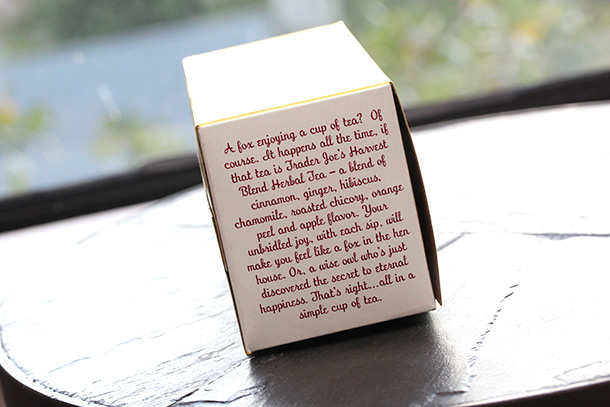 A fox enjoying a cup of tea? Of
course. It happens all the time, if
that tea is Trader Joe's Harvest
Blend Herbal Tea – a blend of
cinnamon, ginger, hibiscus,
chamomile, roasted chicory, orange
peel and apple flavor. Your
unbridled joy, with each sip, will
make you feel like a fox in the hen
house. Or, a wise owl who's just
discovered the secret to eternal
happiness. That's right...all in a
simple cup of tea.